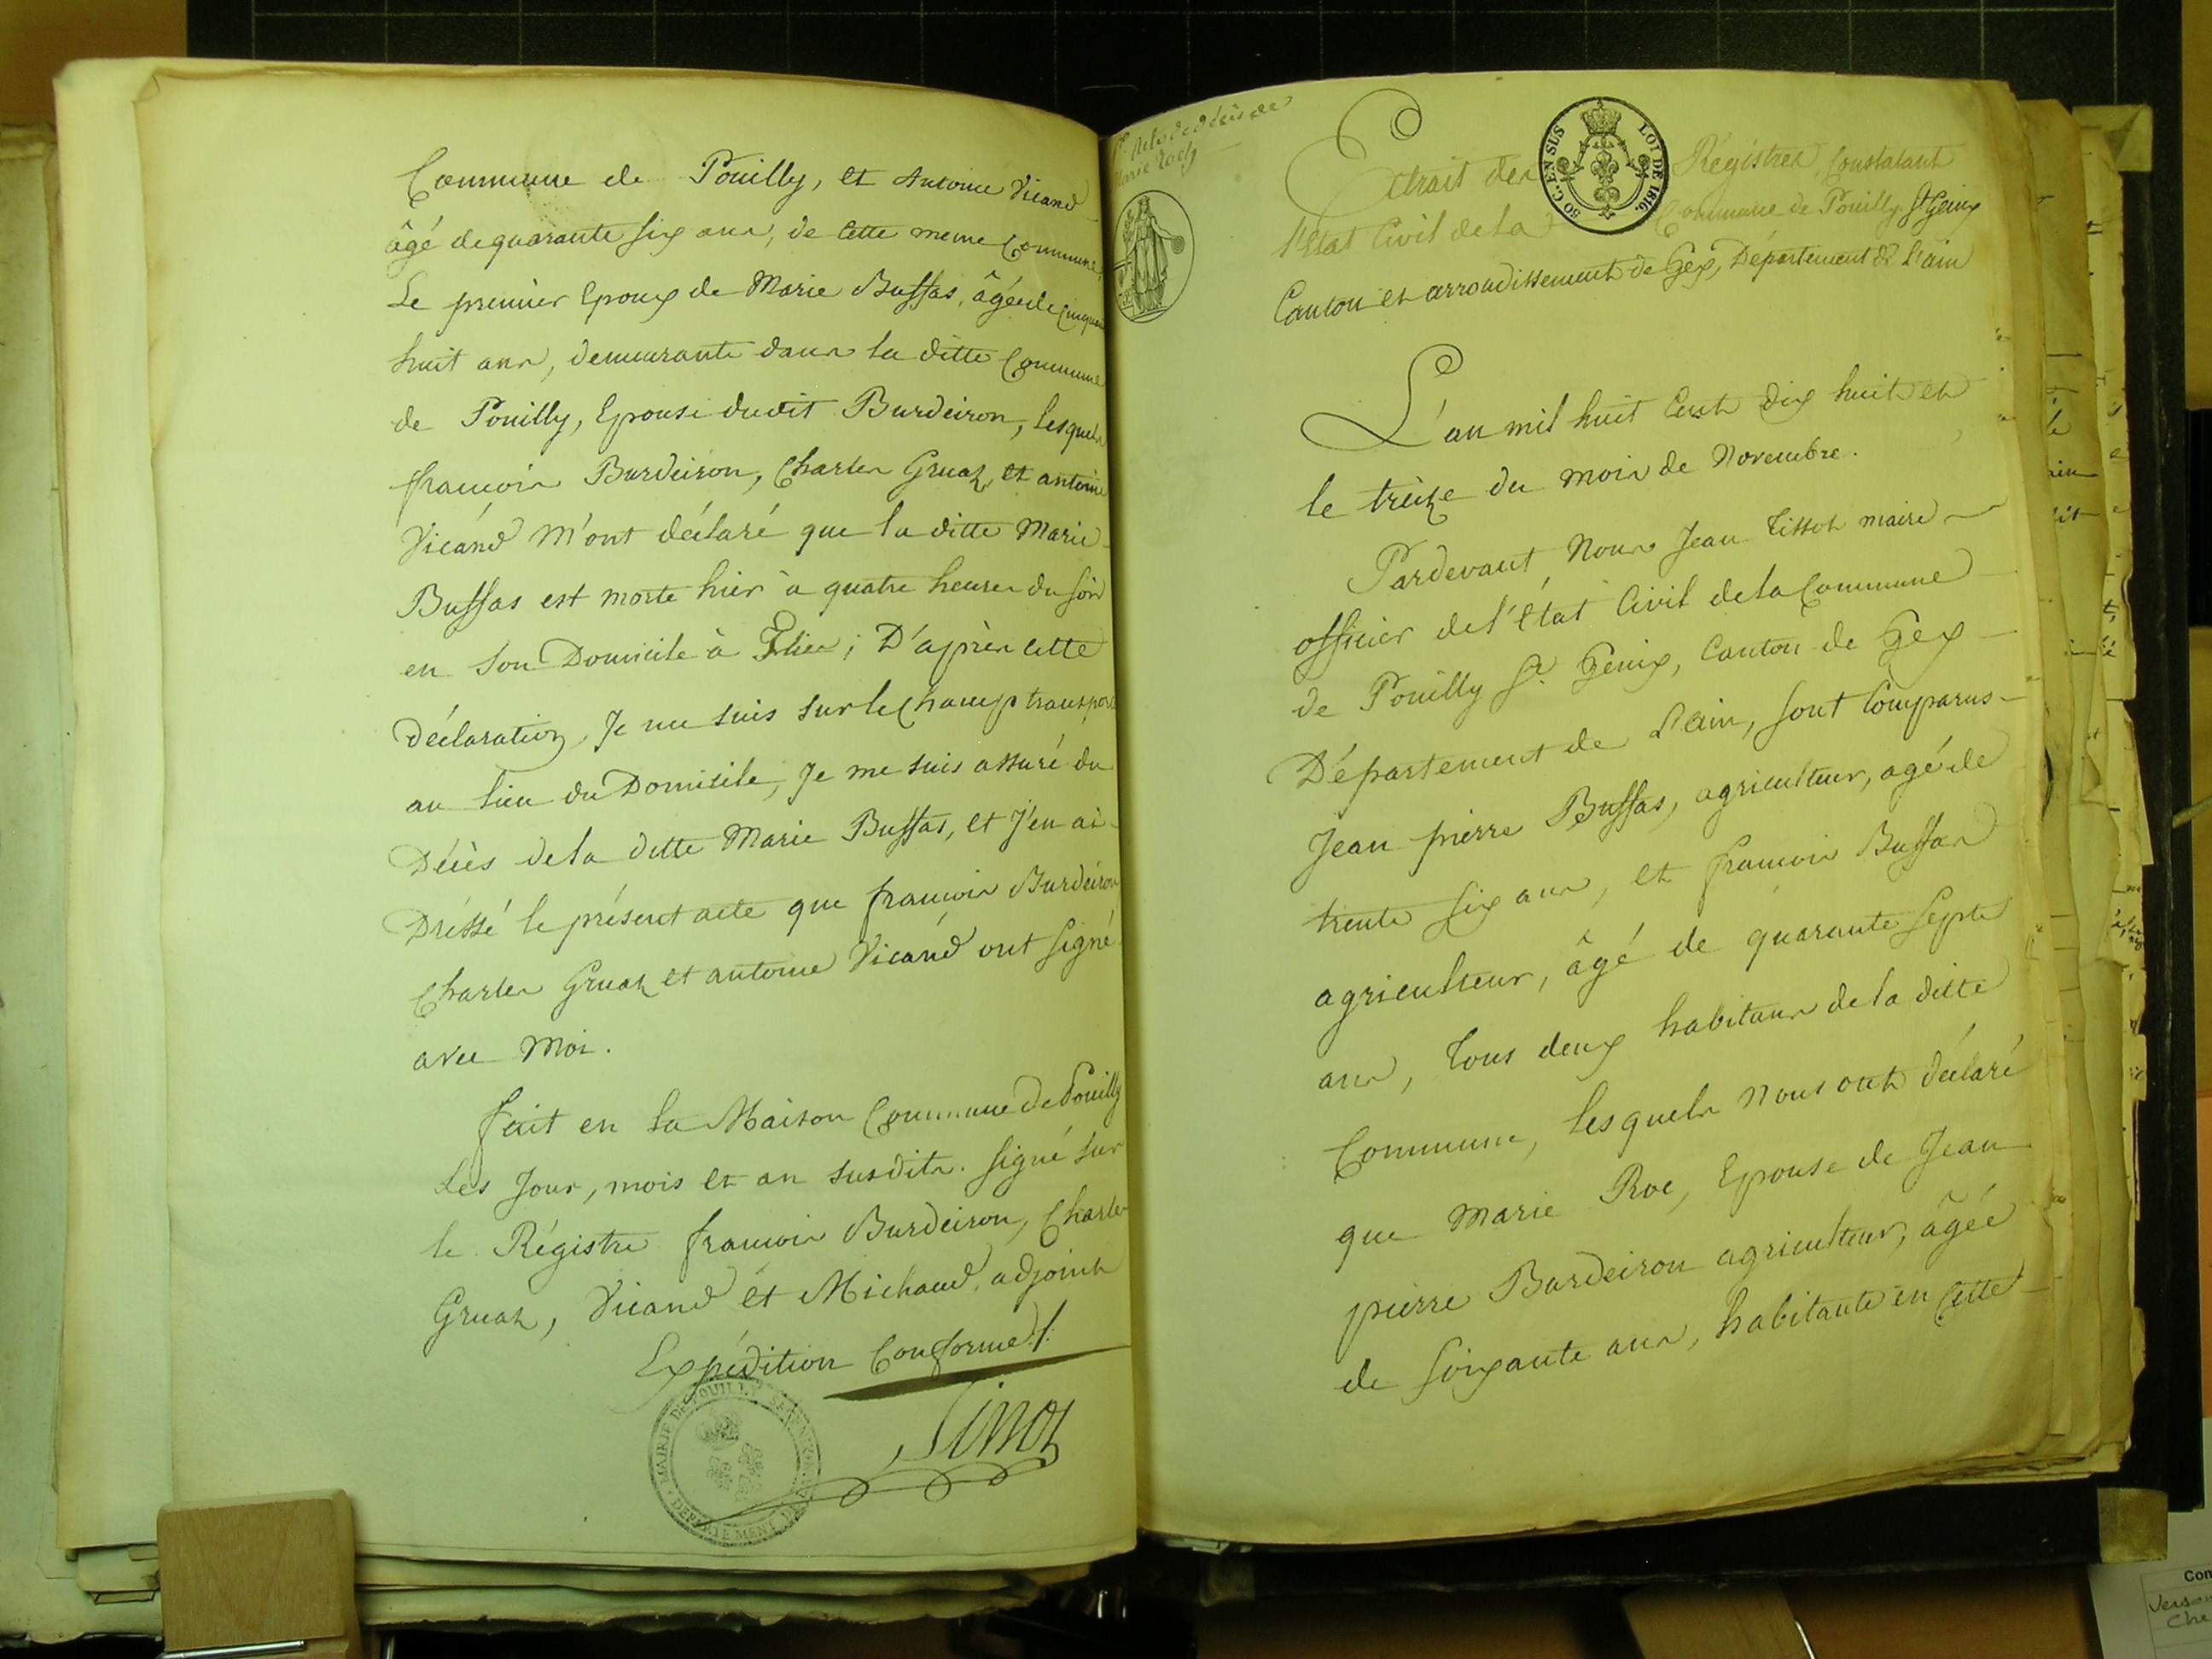 Commune de Pouilly, et Antoine Vicand
âgé de quarante six ans, de cette meme Commune,
Le premier Epoux de Marie Buffas, âgée de Cinquante
huit ans, demeurante dans la ditte Commune
de Pouilly, Epouse dudit Burdeiron, Lesquels
françois Burdeiron, Charles Gruaz, et antoine
Vicand M'ont déclaré que la ditte Marie
Buffas est morte hier à quatre heures du soir
en son Domicile à Flies; D'après cette
déclaration, Je me suis sur le champ transporté
au lieu du Domicile, Je me suis assuré du
Décès de la ditte Marie Buffas, et J'en ai
Dréssé le présent acte que françois Burdeiron
Charles Gruaz et antoine Vicand ont signé
avec Moi.
fait en la Maison Commune de Pouilly
Les Jour, mois et an susdits. signé sur
le Régistre françois Burdeiron, Charles
Gruaz, Vicand et Michaud, adjoint
Expédition Conforme
MAIRIE DE POUILLY
DEPARTEMENT
décès de
Marie
50 C. EN SUS
LOI DE 1816.
Extrait des Régistres, Constatant
l'Etat Civil de la Commune de Pouilly St Genix
Canton et arrondissement de Gex, Département de l'ain
L'an mil huit Cent dix huit et
le treize du mois de Novembre.
Pardevant Nous Jean Tissot maire
officier de l'état Civil de la Commune
de Pouilly St. Genix, Canton de Gex
Département de L'ain, sont Comparus
Jean pierre Buffas, agriculteur, agé de
trente six ans, et françois Buffas
agriculteur, âgé de quarante septe
ans, tous deux habitans de la ditte
Commune, Lesquels Nous ont déclaré
que Marie Roc, Epouse de Jean
pierre Burdeiron agriculteur, âgée
de soixante ans, habitante en Cette
Vers
Che